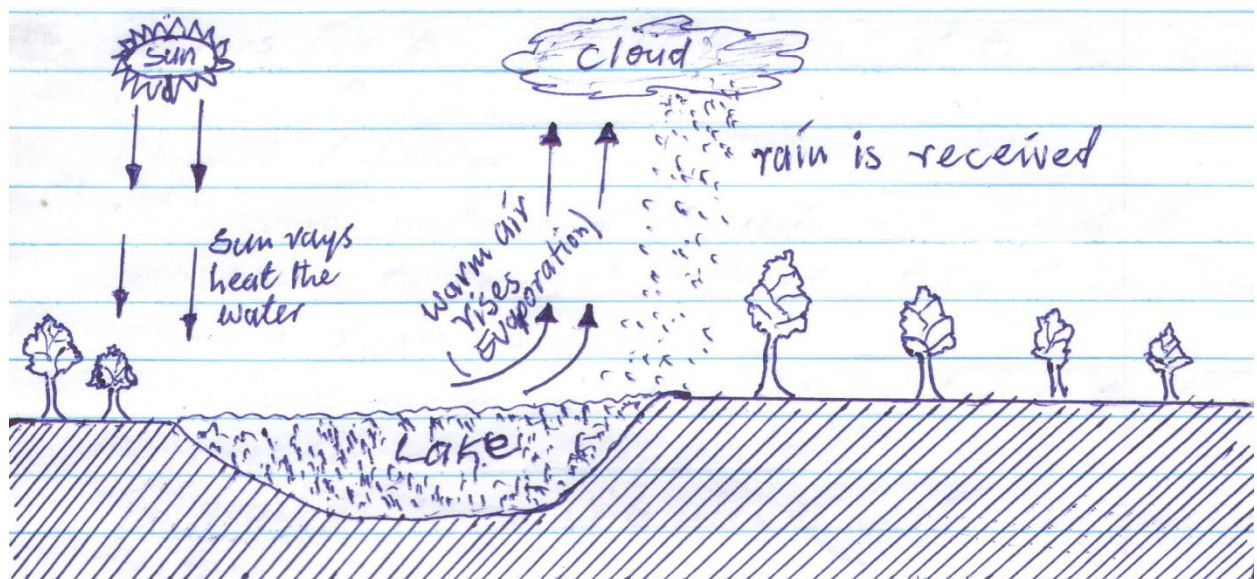 Sun
Cloud
rain is received
Sun rays
heat the
water
warm air
rises
Evaporation)
Lake